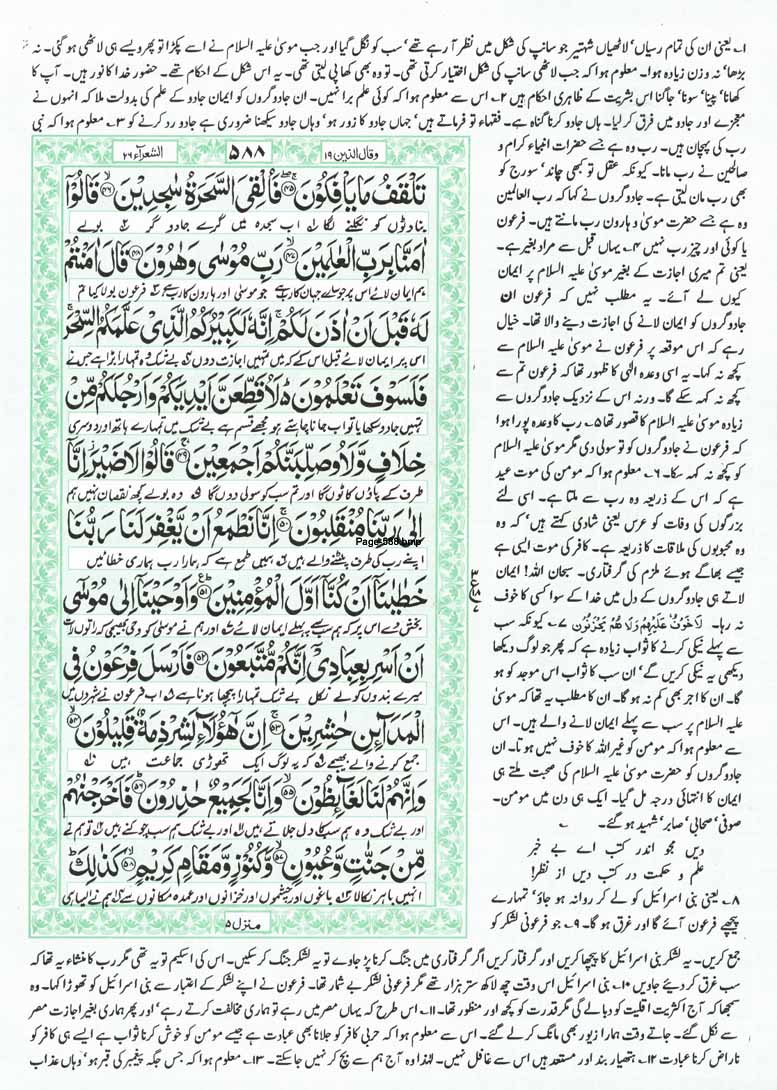 ۱۔ یعنی ان کی تمام رسیاں' لاٹھیاں شہتیر جو سانپ کی شکل میں نظر آ رہے تھے' سب کو نگل گیا اور جب موسیٰ علیہ السلام نے اسے پکڑا تو پھر ویسے ہی لاٹھی ہو گئی۔ نہ
بڑھا' نہ وزن زیادہ ہوا۔ معلوم ہوا کہ جب لاٹھی سانپ کی شکل اختیار کرتی تھی۔ تو وہ بھی کھا پی لیتی تھی۔ یہ اس شکل کے احکام تھے۔ حضور خدا کا نور ہیں۔ آپ کا
کھانا' پینا' سونا' جاگنا اس بشریت کے ظاہری احکام ہیں ۲۔ اس سے معلوم ہوا کہ کوئی علم برا نہیں۔ ان جادوگروں کو ایمان جادو کے علم کی بدولت ملا کہ انہوں نے
معجزے اور جادو میں فرق کر لیا۔ ہاں جادو کرنا گناہ ہے۔ فقہاء تو فرماتے ہیں' جہاں جادو کا زور ہو' وہاں جادو سیکھنا ضروری ہے جادو رد کرنے کو ۳۔ معلوم ہوا کہ نبی
رب کی پہچان ہیں۔ رب وہ ہے جسے حضرات انبیاء کرام و
صالحین نے رب مانا۔ کیونکہ عقل تو کبھی چاند' سورج کو
بھی رب مان لیتی ہے۔ جادوگروں نے کہا کہ رب العالمین
وہ ہے جسے حضرت موسیٰ و ہارون رب مانتے ہیں۔ فرعون
یا کوئی اور چیز رب نہیں ۴۔ یہاں قبل سے مراد بغیر ہے۔
یعنی تم میری اجازت کے بغیر موسیٰ علیہ السلام پر ایمان
کیوں لے آئے۔ یہ مطلب نہیں کہ فرعون ان
جادوگروں کو ایمان لانے کی اجازت دینے والا تھا۔ خیال
رہے کہ اس موقعہ پر فرعون نے موسیٰ علیہ السلام سے
کچھ نہ کہا۔ یہ اسی وعدہ الٰہی کا ظہور تھا کہ فرعون تم سے
کچھ نہ کہہ سکے گا۔ ورنہ اس کے نزدیک جادوگروں سے
زیادہ موسیٰ علیہ السلام کا قصور تھا ۵۔ رب کا وعدہ پورا ہوا
کہ فرعون نے جادوگروں کو تو سولی دی مگر موسیٰ علیہ السلام
کو کچھ نہ کہہ سکا۔ ۶۔ معلوم ہوا کہ مومن کی موت عید
ہے کہ اس کے ذریعہ وہ رب سے ملتا ہے۔ اسی لئے
بزرگوں کی وفات کو عرس یعنی شادی کہتے ہیں' کہ وہ
محبوبوں کی ملاقات کا ذریعہ ہے۔ کافر کی موت ایسی ہے
جیسے بھاگے ہوئے ملزم کی گرفتاری۔ سبحان اللہ! ایمان
لاتے ہی جادوگروں کے دل میں خدا کے سوا کسی کا خوف
نہ رہا۔ لَاخَوْفٌ عَلَيْهِمْ وَلَا هُمْ يَحْزَنُوْنَ ۷۔ کیونکہ سب
سے پہلے نیکی کرنے کا ثواب زیادہ ہے کہ پھر جو لوگ دیکھا
دیکھی یہ نیکی کریں گے' ان سب کا ثواب اس موجد کو ہو
گا۔ ان کا اجر بھی کم نہ ہو گا۔ ان کا مطلب یہ تھا کہ موسیٰ
علیہ السلام پر سب سے پہلے ایمان لانے والے ہیں۔ اس
سے معلوم ہوا کہ مومن کو غیر اللہ کا خوف نہیں ہوتا۔ ان
جادوگروں کو حضرت موسیٰ علیہ السلام کی صحبت ملتے ہی
ایمان کا انتہائی درجہ مل گیا۔ ایک ہی دن میں مومن۔
صوفی' صحابی' صابر' شہید ہو گئے۔
دیں مجو اندر کتب اے بے خبر
علم و حکمت در کتب دیں از نظر!
۸۔ یعنی بنی اسرائیل کو لے کر روانہ ہو جاؤ' تمہارے
پیچھے فرعون آئے گا اور غرق ہو گا۔ ۹۔ جو فرعونی لشکر کو
وقال الذين ۱۹
۵۸۸
الشعراء ۲۶
تَلْقَفُ مَا يَاْفِكُوْنَ ﴿۴۵﴾ فَاُلْقِيَ السَّحَرَةُ سٰجِدِيْنَ ﴿۴۶﴾ قَالُوْٓا
بناوٹوں کو نگلنے لگا اب سجدہ میں گرے جادو گر بولے
اٰمَنَّا بِرَبِّ الْعٰلَمِيْنَ ﴿۴۷﴾ رَبِّ مُوْسٰى وَهٰرُوْنَ ﴿۴۸﴾ قَالَ اٰمَنْتُمْ
ہم ایمان لائے اس پر جو سارے جہان کا رب ہے جو موسیٰ اور ہارون کا رب ہے فرعون بولا کیا تم
لَهٗ قَبْلَ اَنْ اٰذَنَ لَكُمْ اِنَّهٗ لَكَبِيْرُكُمُ الَّذِيْ عَلَّمَكُمُ السِّحْرَ
اس پر ایمان لائے قبل اس کے کہ میں تمہیں اجازت دوں بے شک وہ تمہارا بڑا ہے جس نے
فَلَسَوْفَ تَعْلَمُوْنَ لَاُقَطِّعَنَّ اَيْدِيَكُمْ وَاَرْجُلَكُمْ مِّنْ
تمہیں جادو سکھایا تو اب جانا چاہتے ہو مجھے قسم ہے بے شک میں تمہارے ہاتھ اور دوسری
خِلَافٍ وَّلَاُوصَلِّبَنَّكُمْ اَجْمَعِيْنَ ﴿۴۹﴾ قَالُوْا لَا ضَيْرَ اِنَّآ
طرف کے پاؤں کاٹوں گا اور تم سب کو سولی دوں گا وہ بولے کچھ نقصان نہیں ہم
اِلٰى رَبِّنَا مُنْقَلِبُوْنَ ﴿۵۰﴾ اِنَّا نَطْمَعُ اَنْ يَّغْفِرَ لَنَا رَبُّنَا
Page-588.bmp
اپنے رب کی طرف پلٹنے والے ہیں ہمیں طمع ہے کہ ہمارا رب ہماری خطائیں
خَطٰيٰنَآ اَنْ كُنَّآ اَوَّلَ الْمُؤْمِنِيْنَ ﴿۵۱﴾ وَاَوْحَيْنَآ اِلٰى مُوْسٰٓى
بخش دے اس پر کہ ہم سب سے پہلے ایمان لائے اور ہم نے موسیٰ کو وحی بھیجی کہ راتوں رات
اَنْ اَسْرِ بِعِبَادِيْٓ اِنَّكُمْ مُّتَّبَعُوْنَ ﴿۵۲﴾ فَاَرْسَلَ فِرْعَوْنُ فِي
میرے بندوں کو لے نکل بے شک تمہارا پیچھا ہونا ہے اب فرعون نے شہروں میں
الْمَدَآئِنِ حٰشِرِيْنَ ﴿۵۳﴾ اِنَّ هٰٓؤُلَآءِ لَشِرْذِمَةٌ قَلِيْلُوْنَ ﴿۵۴﴾
جمع کرنے والے بھیجے کہ یہ لوگ ایک تھوڑی جماعت ہیں
وَاِنَّهُمْ لَنَا لَغَآئِظُوْنَ ﴿۵۵﴾ وَاِنَّا لَجَمِيْعٌ حٰذِرُوْنَ ﴿۵۶﴾ فَاَخْرَجْنٰهُمْ
اور بے شک وہ ہم سب کا دل جلاتے ہیں اور بے شک ہم سب چوکنے ہیں تو ہم نے
مِّنْ جَنّٰتٍ وَّعُيُوْنٍ ﴿۵۷﴾ وَّكُنُوْزٍ وَّمَقَامٍ كَرِيْمٍ ﴿۵۸﴾ كَذٰلِكَ
انہیں باہر نکالا باغوں اور چشموں اور خزانوں اور عمدہ مکانوں سے ہم نے ایسا ہی
منزل ۵
جمع کریں۔ یہ لشکر بنی اسرائیل کا پیچھا کریں اور گرفتار کریں اگر گرفتاری میں جنگ کرنا پڑ جاوے تو یہ لشکر جنگ کر سکیں۔ اس کی اسکیم تو یہ تھی مگر رب کا منشاء یہ تھا کہ
سب غرق کر دیئے جاویں ۱۰۔ بنی اسرائیل اس وقت چھ لاکھ ستر ہزار تھے مگر فرعونی لشکر بے شمار تھا۔ فرعون نے اپنے لشکر کے اعتبار سے بنی اسرائیل کو تھوڑا کہا۔ وہ
سمجھا کہ آج اکثریت اقلیت کو دبا لے گی مگر قدرت کو کچھ اور منظور تھا۔ ۱۱۔ اس طرح کہ یہاں مصر میں رہے تو ہماری مخالفت کرتے رہے' اور پھر ہماری بغیر اجازت مصر
سے نکل گئے۔ جاتے وقت ہمارا زیور بھی مانگ کر لے گئے۔ اس سے معلوم ہوا کہ حربی کافر کو جلانا بھی عبادت ہے جیسے مومن کو خوش کرنا ثواب ہے ایسے ہی کافر کو
ناراض کرنا عبادت ۱۲۔ ہتھیار بند اور مستعد ہیں اس سے غافل نہیں۔ لہٰذا وہ آج ہم سے بچ کر نہیں جا سکتے۔ ۱۳۔ معلوم ہوا کہ جس جگہ پیغمبر کی قبر ہو' وہاں عذاب